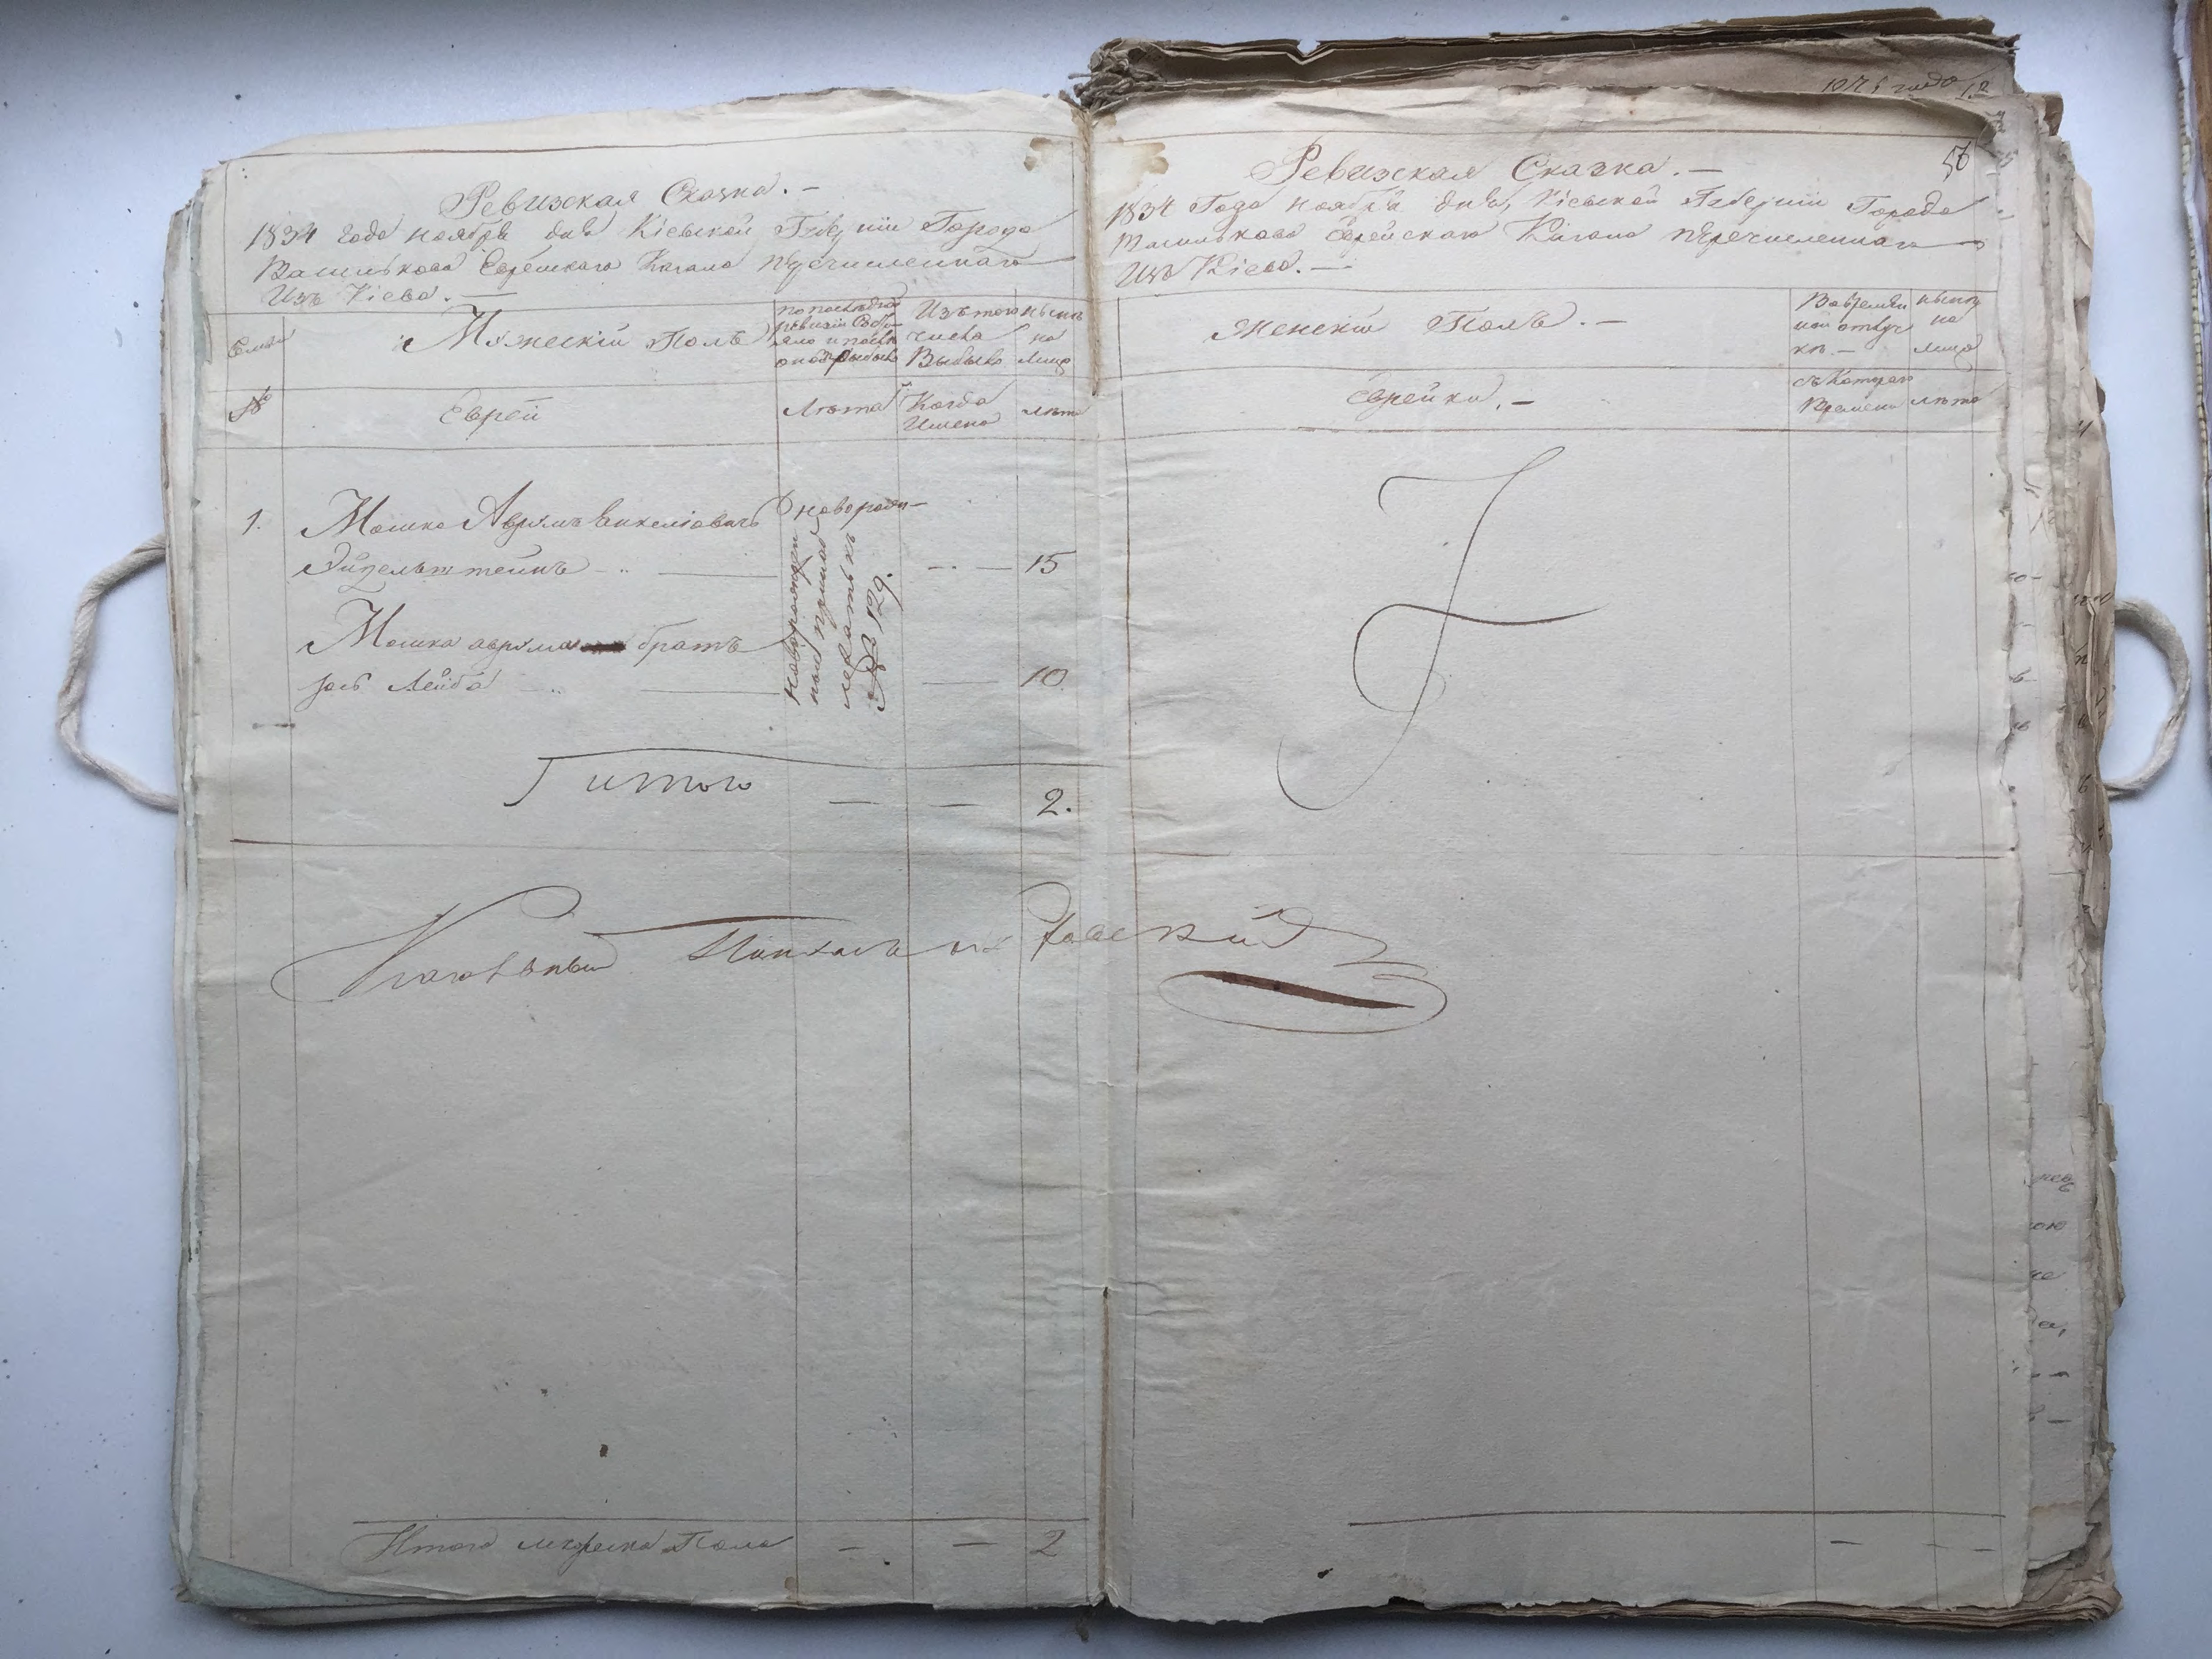 Ревизская Сказка. —
1834 года ноября дня Кіевской Губерніи Города
Василькова Еврейскаго Кагала перечисленнаго
Изъ Кіева. —
Семьи
Мужескій Полъ
по последней
ревизіи состо-
яло и после
оной прибыло
Изъ того
числа
Выбыло
ныне
на
лицо
№
Еврей
Лѣта
Когда
Имено
лѣта
1.
Мошко Аврумъ
Эйдельштейнъ — 15
новорожден-
ные
№ 129.
Мошка аврума братъ
Лейба — 10
Итого — — 2.
Итого мужеска Пола — — 2
1821 года
56
Ревизская Сказка. —
1834 Года ноября дня, Кіевской Губерніи Города
Василькова Еврейскаго Кагала перечисленнаго
Изъ Кіева. —
Женскій Полъ. —
Во временной
отлуч
ке —
ныне
на
лицо
Еврейки. —
съ Котораго
Времени
лѣта
— — —